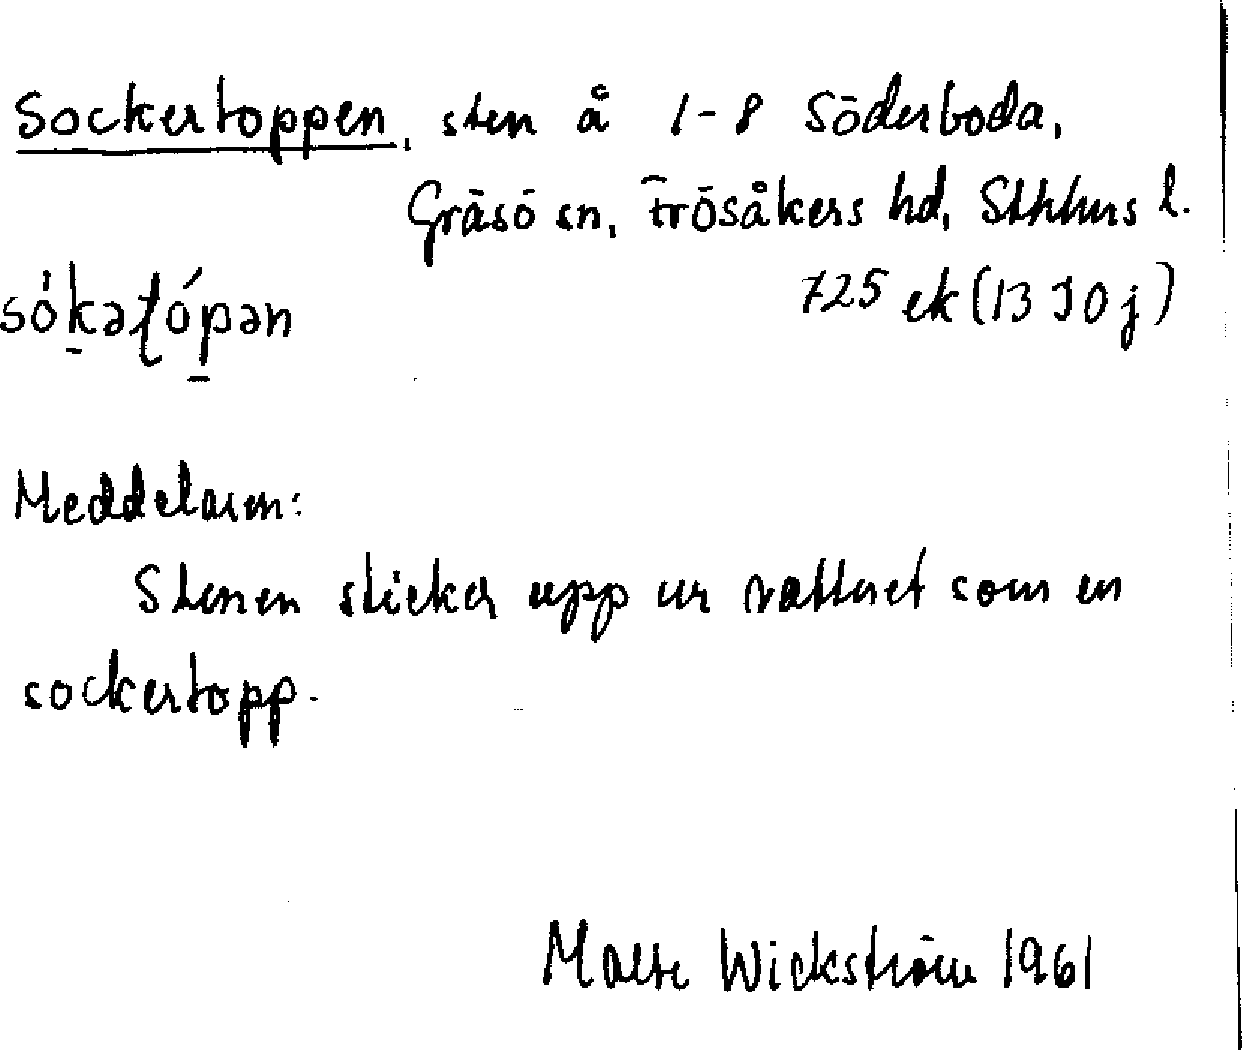 Sockertoppen, sten å 1-8 Söderboda,
Gräsö sn, Frösåkers hd, Sthlms l.
725 ek (13 I 0 j)
sókaʈópan
Meddelaren:
Stenen sticker upp ur vattnet som en
sockertopp.
Malte Wickström 1961